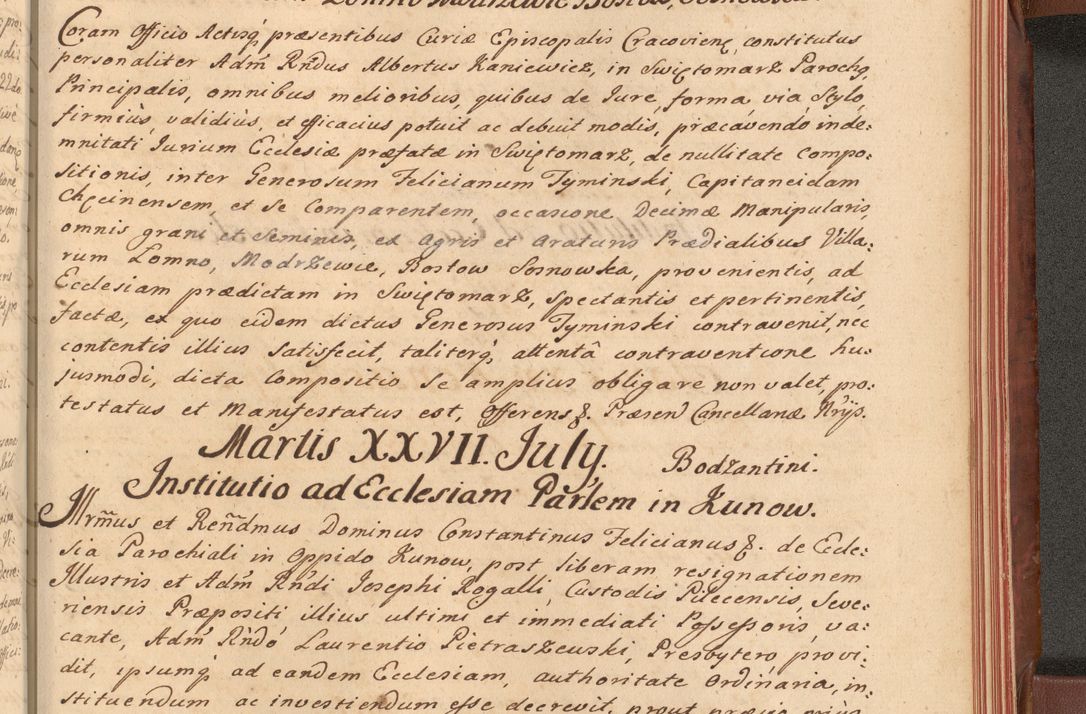 Coram Officio Actisq́ præsentibus Curiæ Episcopalis Cracovienę, constitutus
personaliter Adm̃ Rndus Albertus Kaniewicz, in Swiętomarz Parochq,
Principalis, omnibus melioribus, quibus de Iure, forma, via, Stylo,
firmiùs, validiùs, et efficacius potuit ac debuit modis, præcavendo inde:
mnitati Iurium Ecclesiæ præfatæ in Swiętomarz, de nullitate Compo:
sitionis, inter Generosum Felicianum Tyminski, Capitaneidam
Chęcinensem, et se Comparentem, occasione Decimæ Manipularis,
omnis grani et Seminis, ex Agris et Araturis Prædialibus Villa:
rum Lomno, Modrzewie, Bostow Sosnowska, provenientis, ad
Ecclesiam prædictam in Swiętomarz, spectantis et pertinentis,
factæ, ex quo eidem dictus Generosus Tyminski contravenit, nec
contentis illius satisfecit, taliterq́, attentâ contraventione hu:
jusmodi, dicta Compositio se amplius obligare non valet, pro:
testatus et Manifestatus est, Offerens &. Præsen Cancellariæ
Martis XXVII. July. Bodzantini.
Institutio ad Ecclesiam Parlem in Kunow.
Illrm̃us et Reñdmus Dominus Constantinus Felicianus &. de Eccle:
sia Parochiali in Oppido Kunow, post liberam resignationem
Illustris et Adm̃ Rndi Iosephi Rogalli, Custodis Pilecensis, Seve:
riensis Præpositi illius ultimi et immediati Possessoris, va:
cante, Adm̃ Rndó Laurentio Pietraszewski, Presbytero, provi:
dit, ipsumq́ ad eandem Ecclesiam, authoritate Ordinaria, in:
stituendum ac investiendum esse decrevit, prout